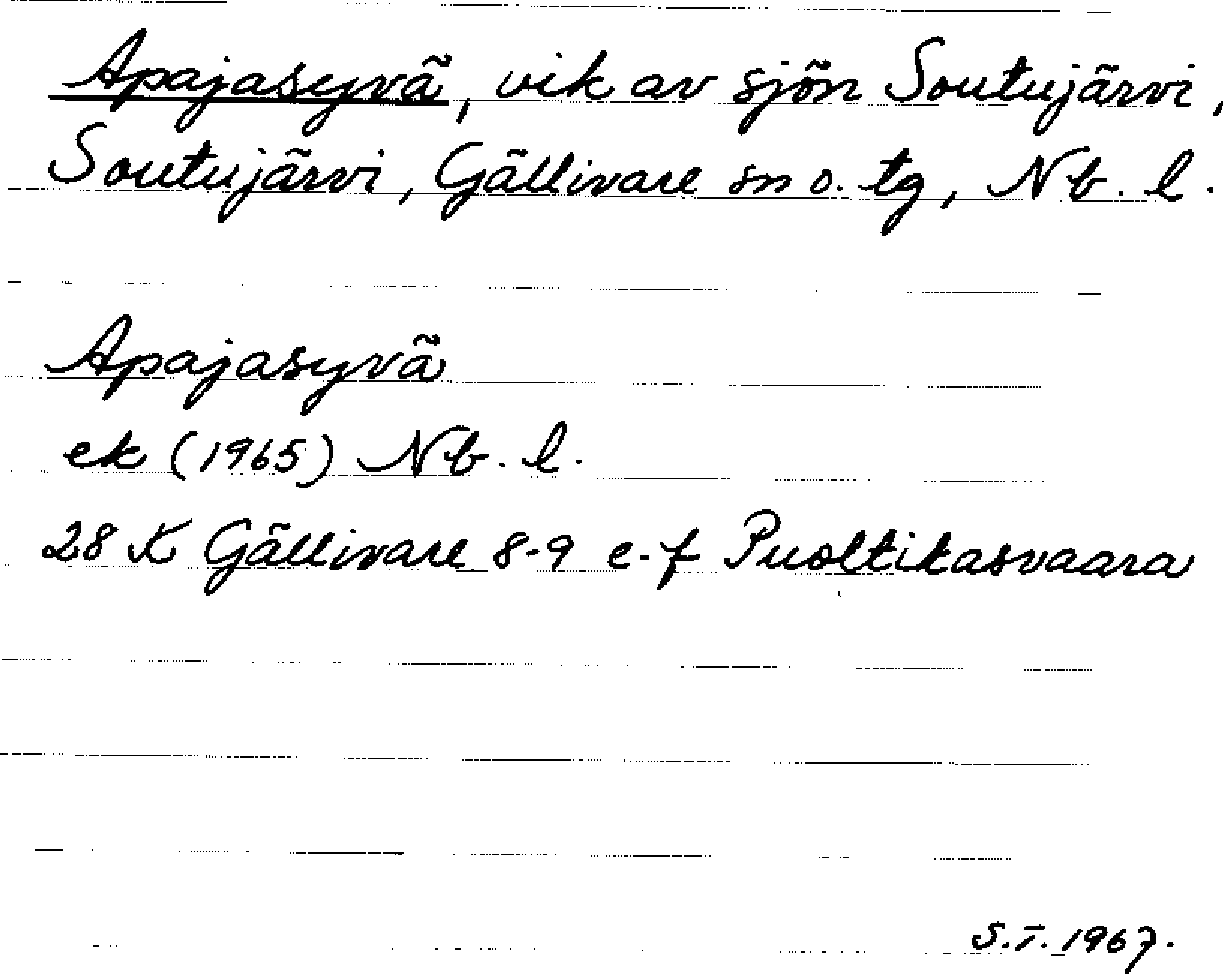 Apajasyvä, vik av sjön Soutujärvi,
Soutujärvi, Gällivare sn o. tg, Nb. l.
Apajasyvä
ek (1965) Nb. l.
28 K Gällivare 8-9 e-f Puoltikasvaara
S.T. 1967.